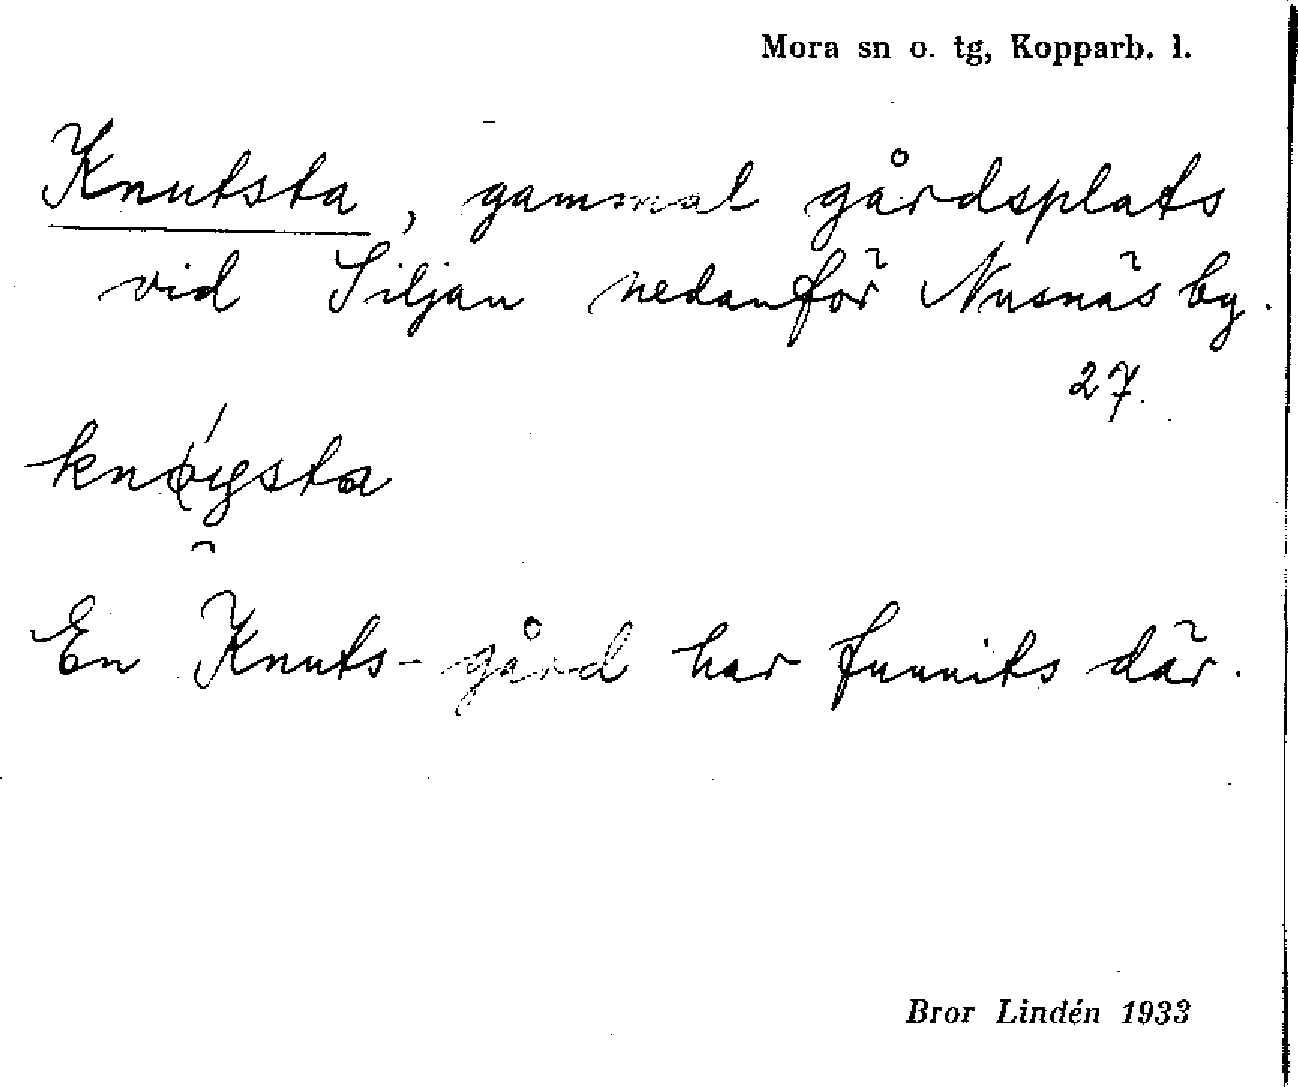 Mora sn o. tg, Kopparb. l.
Knutsta, gammal gårdsplats
vid Siljan nedanför Nusnäs by.
27.
knǿysta
En Knuts-gård har funnits där.
Bror Lindén 1933